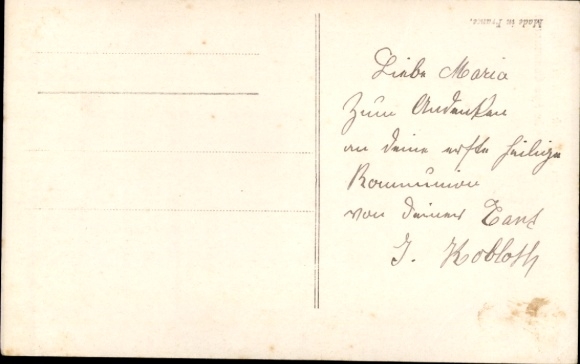 Made in France.
Liebe Maria
Zum Andenken
an deine erste heilige
Kommunion
von deiner Tant
J. Kobloth